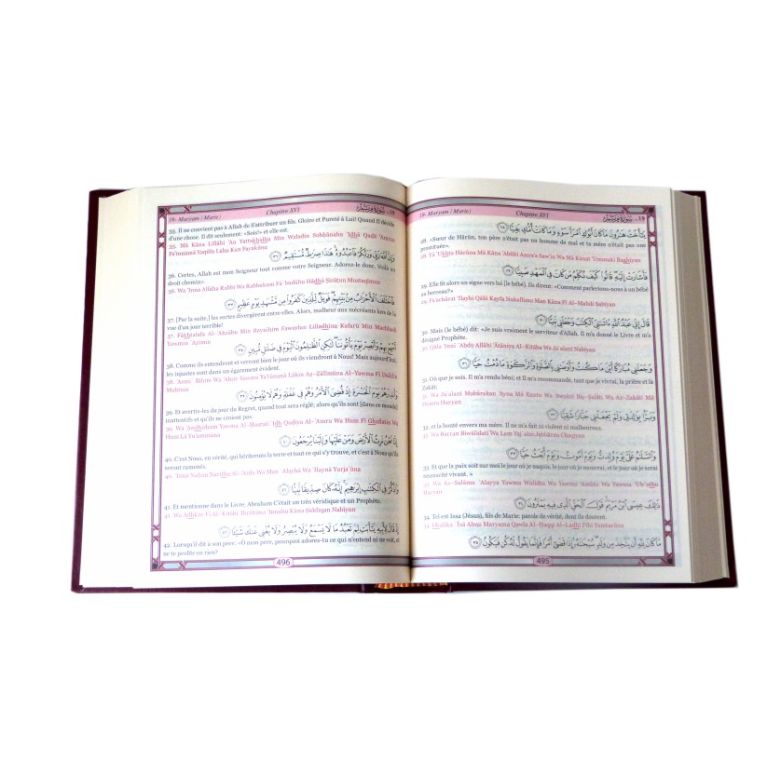 19- Maryam (Marie) Chapitre XVI ١٩- سورة مريم
يَٰٓأُخْتَ هَٰرُونَ مَا كَانَ أَبُوكِ ٱمْرَأَ سَوْءٍ وَمَا كَانَتْ أُمُّكِ بَغِيًّا ٢٨
28. «Sœur de Hârûn, ton père n'était pas un homme de mal et ta mère n'était pas une
prostituée».
28 Yā 'Ukhta Hārūna Mā Kāna 'Abūki Amra'a Saw'in Wa Mā Kānat 'Ummuki Baghīyan
فَأَشَارَتْ إِلَيْهِ قَالُوا۟ كَيْفَ نُكَلِّمُ مَن كَانَ فِى ٱلْمَهْدِ صَبِيًّا ٢٩
29. Elle fit alors un signe vers lui (le bébé). Ils dirent: «Comment parlerions-nous à un bébé
au berceau?»
29 Fa'ashārat 'Ilayhi Qālū Kayfa Nukallimu Man Kāna Fī Al-Mahdi Şabīyan
قَالَ إِنِّى عَبْدُ ٱللَّهِ ءَاتَىٰنِىَ ٱلْكِتَٰبَ وَجَعَلَنِى نَبِيًّا ٣٠
30. Mais (le bébé) dit: «Je suis vraiment le serviteur d'Allah. Il m'a donné le Livre et m'a
désigné Prophète.
30 Qāla 'Innī 'Abdu Allāhi 'Ātāniya Al-Kitāba Wa Ja'alanī Nabīyan
وَجَعَلَنِى مُبَارَكًا أَيْنَ مَا كُنتُ وَأَوْصَٰنِى بِٱلصَّلَوٰةِ وَٱلزَّكَوٰةِ مَا دُمْتُ حَيًّا ٣١
31. Où que je sois, Il m'a rendu béni; et Il m'a recommandé, tant que je vivrai, la prière et la
Zakât;
31 Wa Ja'alanī Mubārakan 'Ayna Mā Kuntu Wa 'Awşānī Biş-Şalāti Wa Az-Zakāti Mā
Dumtu Ḥayyan
وَبَرًّۢا بِوَٰلِدَتِى وَلَمْ يَجْعَلْنِى جَبَّارًا شَقِيًّا ٣٢
32. et la bonté envers ma mère. Il ne m'a fait ni violent ni malheureux.
32 Wa Barran Biwālidatī Wa Lam Yaj'alnī Jabbāran Shaqīyan
وَٱلسَّلَٰمُ عَلَىَّ يَوْمَ وُلِدتُّ وَيَوْمَ أَمُوتُ وَيَوْمَ أُبْعَثُ حَيًّا ٣٣
33. Et que la paix soit sur moi le jour où je naquis, le jour où je mourrai, et le jour où je serai
ressuscité vivant. »
33 Wa As-Salāmu 'Alayya Yawma Wulidtu Wa Yawma 'Amūtu Wa Yawma 'Ub'athu
Ḥayyan
ذَٰلِكَ عِيسَى ٱبْنُ مَرْيَمَ قَوْلَ ٱلْحَقِّ ٱلَّذِى فِيهِ يَمْتَرُونَ ٣٤
34. Tel est Issa (Jésus), fils de Marie: parole de vérité, dont ils doutent.
34 Dhālika 'Īsā Abnu Maryama Qawla Al-Ḥaqqi Al-Ladhī Fīhi Yamtarūna
مَا كَانَ لِلَّهِ أَن يَتَّخِذَ مِن وَلَدٍ سُبْحَٰنَهُۥٓ إِذَا قَضَىٰٓ أَمْرًا فَإِنَّمَا يَقُولُ لَهُۥ كُن فَيَكُونُ ٣٥
495
19- Maryam (Marie) Chapitre XVI ١٩- سورة مريم
35. Il ne convient pas à Allah de S'attribuer un fils. Gloire et Pureté à Lui! Quand Il décide
d'une chose, Il dit seulement: «Sois!» et elle est.
35 Mā Kāna Lillāhi 'An Yattakhidha Min Waladin Subḥānahu 'Idhā Qađá 'Amran
Fa'innamā Yaqūlu Lahu Kun Fayakūnu
وَإِنَّ ٱللَّهَ رَبِّى وَرَبُّكُمْ فَٱعْبُدُوهُ هَٰذَا صِرَٰطٌ مُّسْتَقِيمٌ ٣٦
36. Certes, Allah est mon Seigneur tout comme votre Seigneur. Adorez-le donc. Voilà un
droit chemin».
36 Wa 'Inna Allāha Rabbī Wa Rabbukum Fā'budūhu Hādhā Şirāţun Mustaqīmun
فَٱخْتَلَفَ ٱلْأَحْزَابُ مِنۢ بَيْنِهِمْ فَوَيْلٌ لِّلَّذِينَ كَفَرُوا۟ مِن مَّشْهَدِ يَوْمٍ عَظِيمٍ ٣٧
37. [Par la suite,] les sectes divergèrent entre elles. Alors, malheur aux mécréants lors de la
vue d'un jour terrible!
37 Fākhtalafa Al-'Aḥzābu Min Baynihim Fawaylun Lilladhīna Kafarū Min Mash/hadi
Yawmin 'Ažīmin
أَسْمِعْ بِهِمْ وَأَبْصِرْ يَوْمَ يَأْتُونَنَا لَٰكِنِ ٱلظَّٰلِمُونَ ٱلْيَوْمَ فِى ضَلَٰلٍ مُّبِينٍ ٣٨
38. Comme ils entendront et verront bien le jour où ils viendront à Nous! Mais aujourd'hui,
les injustes sont dans un égarement évident.
38 'Asmi' Bihim Wa 'Abşir Yawma Ya'tūnanā Lākini Až-Žālimūna Al-Yawma Fī Đalālin
Mubīnin
وَأَنذِرْهُمْ يَوْمَ ٱلْحَسْرَةِ إِذْ قُضِىَ ٱلْأَمْرُ وَهُمْ فِى غَفْلَةٍ وَهُمْ لَا يُؤْمِنُونَ ٣٩
39. Et avertis-les du jour du Regret, quand tout sera réglé; alors qu'ils sont [dans ce monde]
inattentifs et qu'ils ne croient pas.
39 Wa 'Andhirhum Yawma Al-Ḥasrati 'Idh Quđiya Al-'Amru Wa Hum Fī Ghaflatin Wa
Hum Lā Yu'uminūna
إِنَّا نَحْنُ نَرِثُ ٱلْأَرْضَ وَمَنْ عَلَيْهَا وَإِلَيْنَا يُرْجَعُونَ ٤٠
40. C'est Nous, en vérité, qui hériterons la terre et tout ce qui s'y trouve, et c'est à Nous qu'ils
seront ramenés.
40 'Innā Naḥnu Narithu Al-'Arđa Wa Man 'Alayhā Wa 'Ilaynā Yurja'ūna
وَٱذْكُرْ فِى ٱلْكِتَٰبِ إِبْرَٰهِيمَ إِنَّهُۥ كَانَ صِدِّيقًا نَّبِيًّا ٤١
41. Et mentionne dans le Livre, Abraham C'était un très véridique et un Prophète.
41 Wa Adhkur Fī Al-Kitābi 'Ibrāhīma 'Innahu Kāna Şiddīqan Nabīyan
إِذْ قَالَ لِأَبِيهِ يَٰٓأَبَتِ لِمَ تَعْبُدُ مَا لَا يَسْمَعُ وَلَا يُبْصِرُ وَلَا يُغْنِى عَنكَ شَيْـًٔا ٤٢
42. Lorsqu'il dit à son père: «Ô mon père, pourquoi adores-tu ce qui n'entend ni ne voit, et
ne te profite en rien?
496